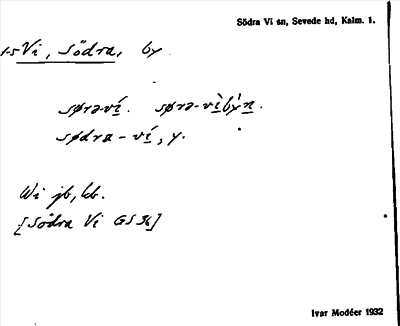 Södra Vi sn, Sevede hd, Kalm. 1.
1-5 Vi, Södra, by
sørəví. sørə-vìbỳn.
södra-ví, y.
Wi jb, kb.
[Södra Vi GS36]
Ivar Modéer 1932